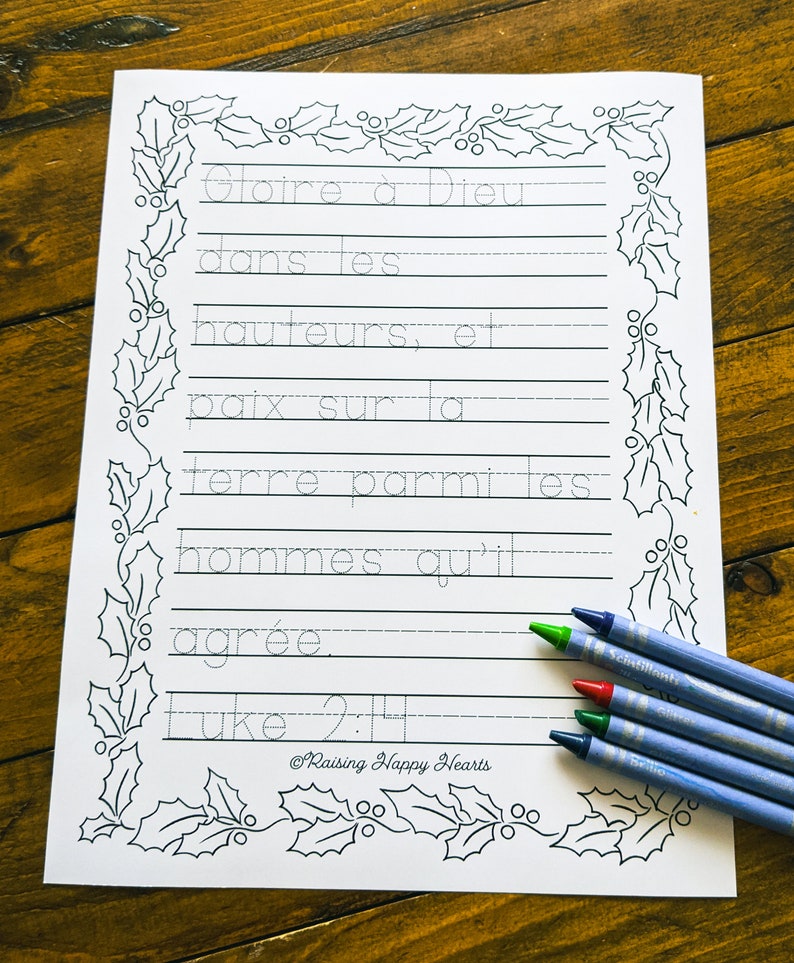 Gloire à Dieu
dans les
hauteurs, et
paix sur la
terre parmi les
hommes qu'il
agrée.
Luke 2:14
©Raising Happy Hearts
Scintillanti
Glitter
Brillo